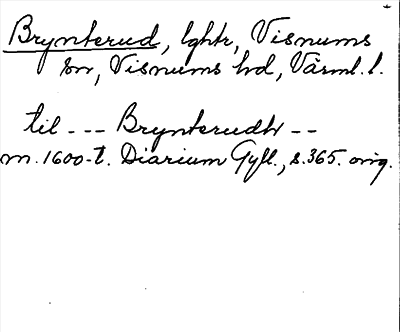 Brynterud, lghtr, Visnums
sn, Visnums hd, Värml. l.
til --- Brynterudh --
m. 1600-t. Diarium Gyll., s. 365. orig.